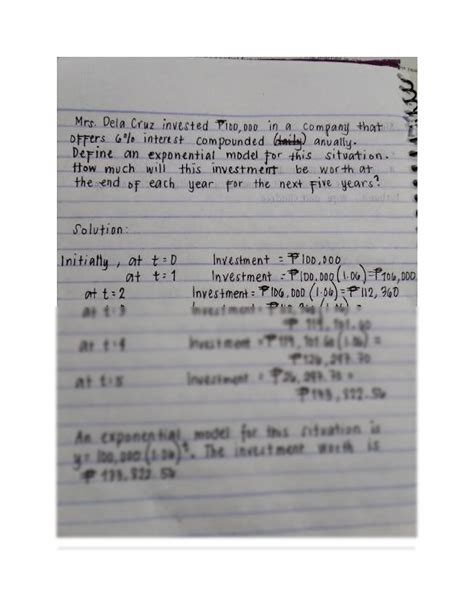 Mrs. Dela Cruz invested ₱100,000 in a company that
offers 6% interest compounded (daily) anually.
Define an exponential model for this situation.
How much will this investment be worth at
the end of each year for the next five years?
Solution:
Initially, at t=0 Investment = ₱100,000
at t=1 Investment = ₱100,000(1.06)=₱106,000
at t=2 Investment = ₱106,000(1.06)=₱112,360
at t=3 Investment = ₱112,360(1.06) =
₱119,101.60
at t=4 Investment = ₱119,101.60(1.06) =
at t=5 Investment =
An exponential model for this situation is
y= 100,000(1.06)ᵗ. The investment worth is